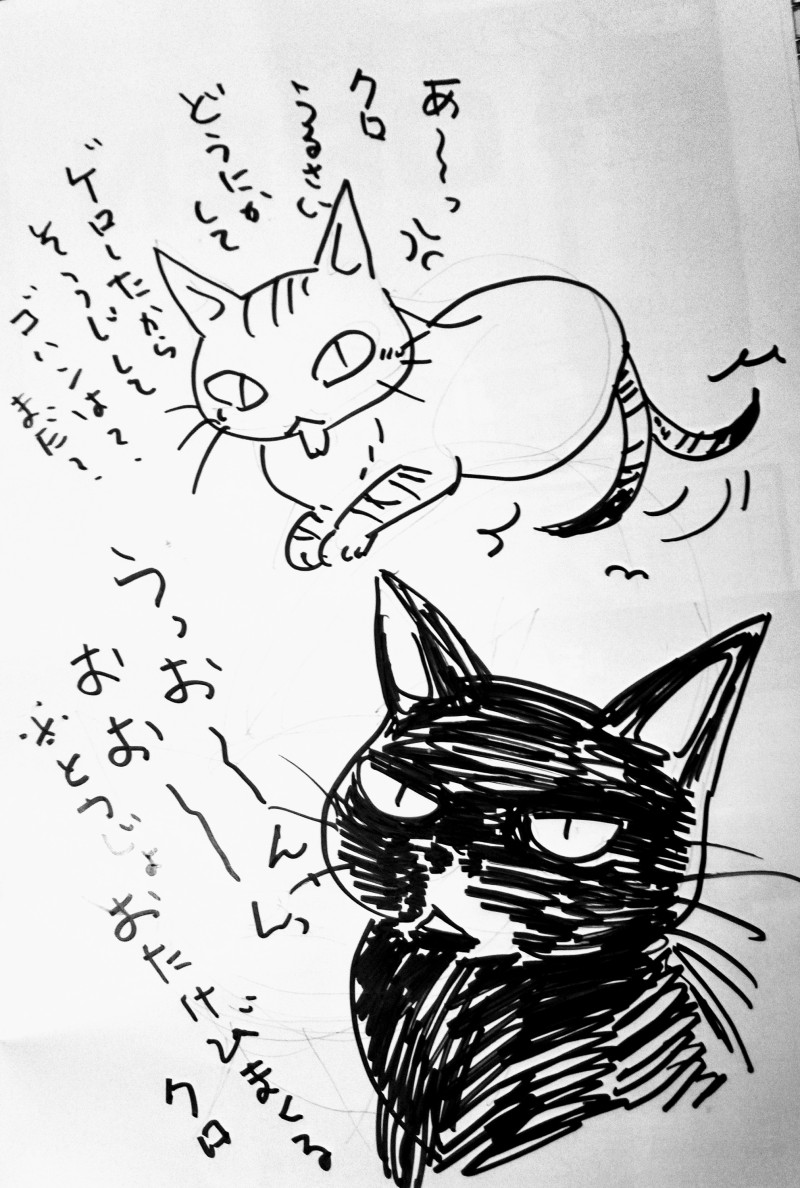 あ〜〜っ
クロ
うるさい
どうにか
して
ゲローしたから
そうじして
ゴハンは?
まだ?
うっお〜ん
おお〜んっ
※とうじょ
おだけびましる
クロ